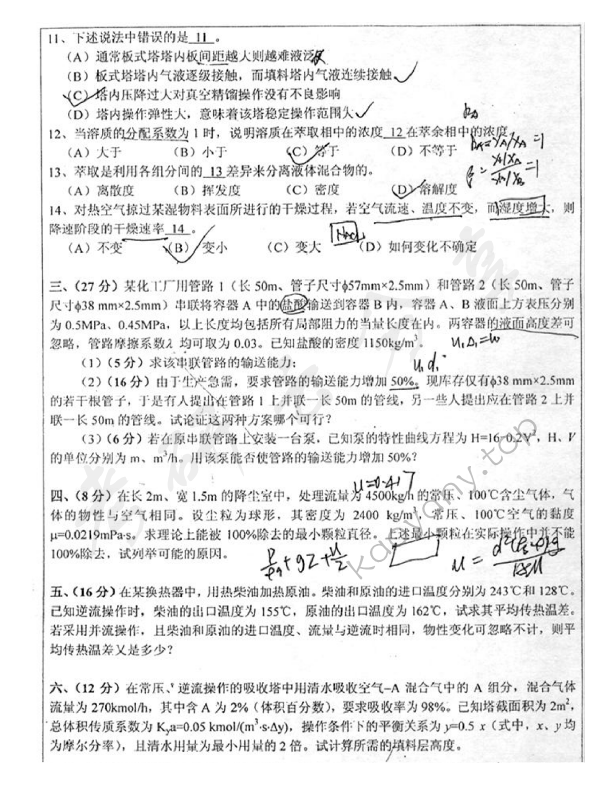 11、下述说法中错误的是 11 。
(A)通常板式塔塔内板间距越大则越难液泛
(B)板式塔塔内气液逐级接触，而填料塔内气液连续接触
(C)塔内压降过大对真空精馏操作没有不良影响
(D)塔内操作弹性大，意味着该塔稳定操作范围大
12、当溶质的分配系数为1时，说明溶质在萃取相中的浓度 12 在萃余相中的浓度
(A)大于 (B)小于 (C)等于 (D)不等于
13、萃取是利用各组分间的 13 差异来分离液体混合物的。
(A)离散度 (B)挥发度 (C)密度 (D)溶解度
14、对热空气掠过某湿物料表面所进行的干燥过程，若空气流速、温度不变，而湿度增大，则
降速阶段的干燥速率 14 。
(A)不变 (B)变小 (C)变大 (D)如何变化不确定
三、(27分)某化工厂用管路1（长50m、管子尺寸ϕ57mm×2.5mm）和管路2（长50m、管子
尺寸ϕ38 mm×2.5mm）串联将容器A中的盐酸输送到容器B内，容器A、B液面上方表压分别
为0.5MPa、0.45MPa，以上长度均包括所有局部阻力的当量长度在内。两容器的液面高度差可
忽略，管路摩擦系数λ均可取为0.03。已知盐酸的密度1150kg/m³。
(1)(5分)求该串联管路的输送能力；
(2)(16分)由于生产急需，要求管路的输送能力增加50%。现库存仅有ϕ38 mm×2.5mm
的若干根管子，于是有人提出在管路1上并联一长50m的管线，另一些人提出应在管路2上并
联一长50m的管线。试论证这两种方案哪个可行？
(3)(6分)若在原串联管路上安装一台泵，已知泵的特性曲线方程为H=16-0.2V²，H、V
的单位分别为m、m³/h。用该泵能否使管路的输送能力增加50%？
u=0.417
四、(8分)在长2m、宽1.5m的降尘室中，处理流量为4500kg/h的常压、100℃含尘气体，气
体的物性与空气相同。设尘粒为球形，其密度为2400 kg/m³，常压、100℃空气的黏度
μ=0.0219mPa·s。求理论上能被100%除去的最小颗粒直径。上述最小颗粒在实际操作中并不能
100%除去，试列举可能的原因。
五、(16分)在某换热器中，用热柴油加热原油。柴油和原油的进口温度分别为243℃和128℃。
已知逆流操作时，柴油的出口温度为155℃，原油的出口温度为162℃，试求其平均传热温差。
若采用并流操作，且柴油和原油的进口温度、流量与逆流时相同，物性变化可忽略不计，则平
均传热温差又是多少？
六、(12分)在常压、逆流操作的吸收塔中用清水吸收空气–A混合气中的A组分，混合气体
流量为270kmol/h，其中含A为2%（体积百分数），要求吸收率为98%。已知塔截面积为2m²，
总体积传质系数为Kya=0.05 kmol/(m³·s·Δy)，操作条件下的平衡关系为y=0.5 x（式中，x、y均
为摩尔分率），且清水用量为最小用量的2倍。试计算所需的填料层高度。
kaoyany.top